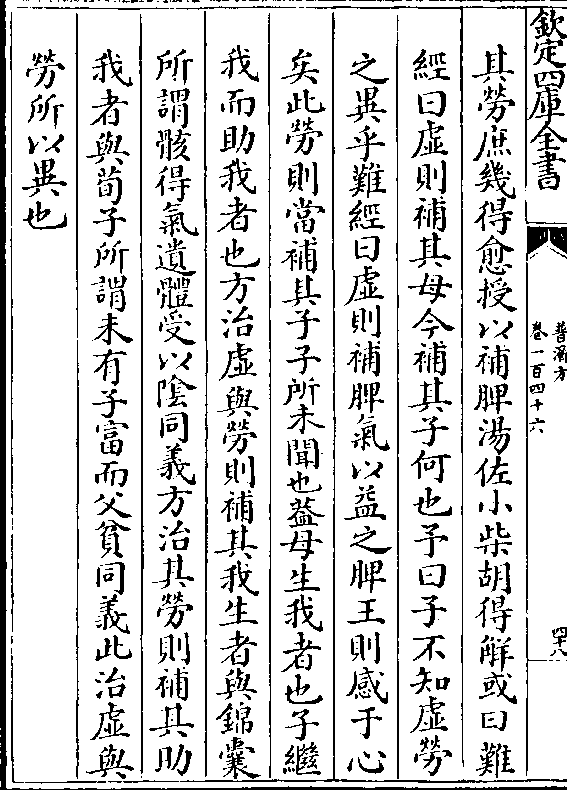 欽定四庫全書
普濟方
卷一百四十六
四十八
其勞庶幾得愈授以補脾湯佐小柴胡得解或曰難
經曰虛則補其母今補其子何也予曰子不知虛勞
之異乎難經曰虛則補脾氣以益之脾王則感于心
矣此勞則當補其子子所未聞也葢母生我者也子繼
我而助我者也方治虛與勞則補其我生者與錦囊
所謂骸得氣遺體受以陰同義方治其勞則補其助
我者與荀子所謂未有子富而父貧同義此治虛與
勞所以異也